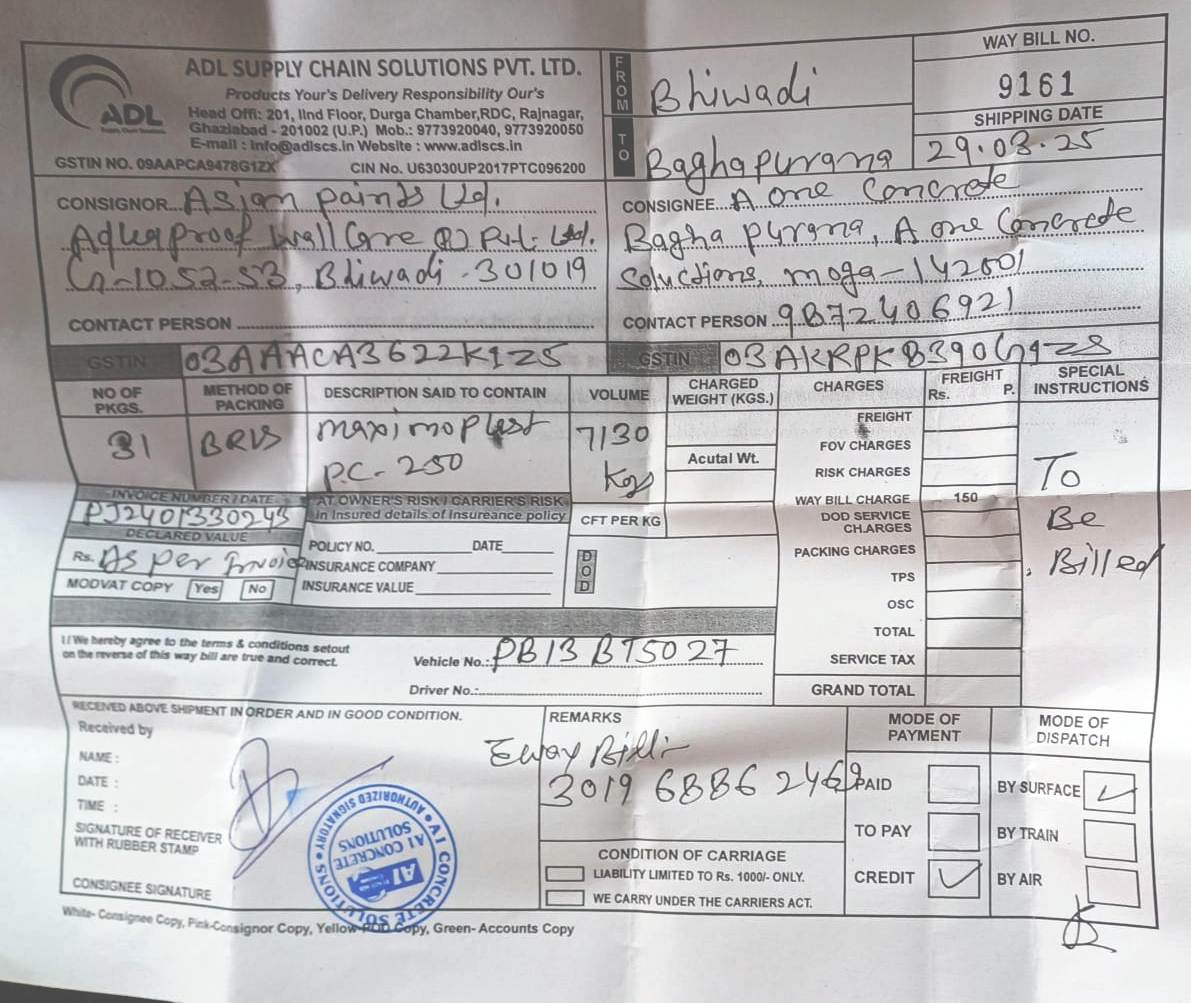 ADL SUPPLY CHAIN SOLUTIONS PVT. LTD.
Products Your's Delivery Responsibility Our's
Head Offi: 201, IInd Floor, Durga Chamber,RDC, Rajnagar,
Ghaziabad - 201002 (U.P.) Mob.: 9773920040, 9773920050
E-mail : Info@adlscs.in Website : www.adlscs.in
GSTIN NO. 09AAPCA9478G1ZX CIN No. U63030UP2017PTC096200
ADL
FROM Bhiwadi
TO Baghapurana
WAY BILL NO.
9161
SHIPPING DATE
29.03.25
CONSIGNOR Asian paints Ltd.
Aquaproof Wall Care (P) Pvt. Ltd.
G-1052-53, Bhiwadi-301019
CONTACT PERSON
GSTIN 03AAACA3622K1Z5
CONSIGNEE A one Concrete
Bagha purana, A one Concrete
Soluctions, moga-142001
CONTACT PERSON 9872406921
GSTIN 03AKRPK8390G1ZS
NO OF PKGS.
31
METHOD OF PACKING
DESCRIPTION SAID TO CONTAIN
maximoplast
P.C-250
VOLUME
7130
Kgs
CHARGED WEIGHT (KGS.)
Acutal Wt.
CFT PER KG
CHARGES
FREIGHT
Rs. P.
SPECIAL INSTRUCTIONS
FREIGHT
FOV CHARGES
RISK CHARGES
WAY BILL CHARGE 150
DOD SERVICE CHARGES
PACKING CHARGES
TPS
OSC
TOTAL
SERVICE TAX
GRAND TOTAL
To
Be
Billed
INVOICE NUMBER / DATE
PJ2401330243
DECLARED VALUE
Rs. As per Invoice
MODVAT COPY Yes No
AT OWNER'S RISK / CARRIER'S RISK
in Insured details of Insureance policy
POLICY NO. DATE
INSURANCE COMPANY
INSURANCE VALUE
DOD
I / We hereby agree to the terms & conditions setout
on the reverse of this way bill are true and correct.
Vehicle No.: PB13BT5027
Driver No.:
RECEIVED ABOVE SHIPMENT IN ORDER AND IN GOOD CONDITION.
Received by
NAME :
DATE :
TIME :
SIGNATURE OF RECEIVER
WITH RUBBER STAMP
CONSIGNEE SIGNATURE
A1 CONCRETE SOLUTIONS
AUTHORIZED SIGNATORY
A1 CONCRETE
SOLUTIONS
A1
REMARKS
Eway Bill:-
3019 6886 2469
CONDITION OF CARRIAGE
LIABILITY LIMITED TO Rs. 1000/- ONLY.
WE CARRY UNDER THE CARRIERS ACT.
MODE OF PAYMENT
PAID
TO PAY
CREDIT
MODE OF DISPATCH
BY SURFACE
BY TRAIN
BY AIR
White- Consignee Copy, Pink-Consignor Copy, Yellow-POD Copy, Green- Accounts Copy